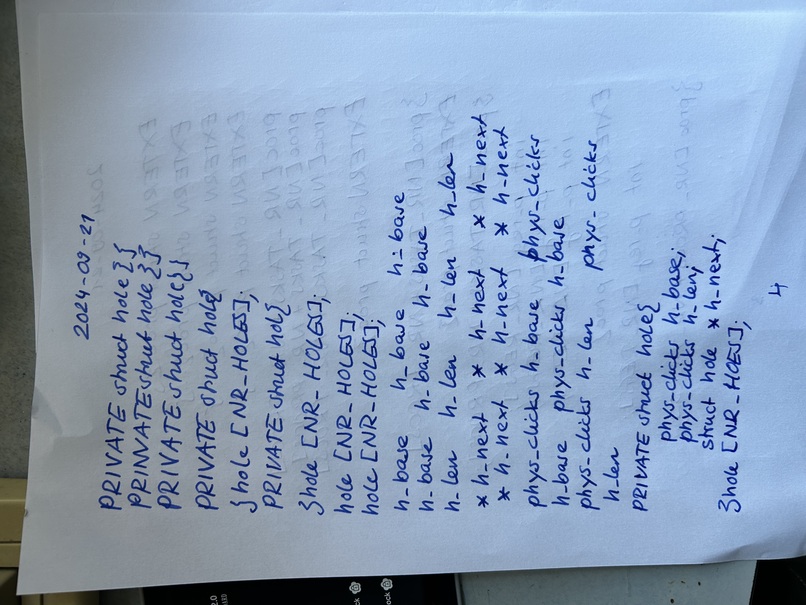 2024-09-21
PRIVATE struct hole {}
PRINVATE struct hole {}
PRIVATE struct hole{}
PRIVATE struct hole{
}hole [NR_HOLES];
PRIVATE struct hol{
}hole [NR_HOLES];
hole [NR_HOLES];
hole [NR_HOLES];
h_base h_base h_base
h_base h_base h_base
h_len h_len h_len h_len
* h_next * h_next * h_next
* h_next * h_next * h_next
phys_clicks h_base phys_clicks
h_base phys_clicks h_base
phys_clicks h_len phys_clicks
h_len
PRIVATE struct hole{
phys_clicks h_base;
phys_clicks h_len;
struct hole * h_next;
}hole [NR_HOES];
4